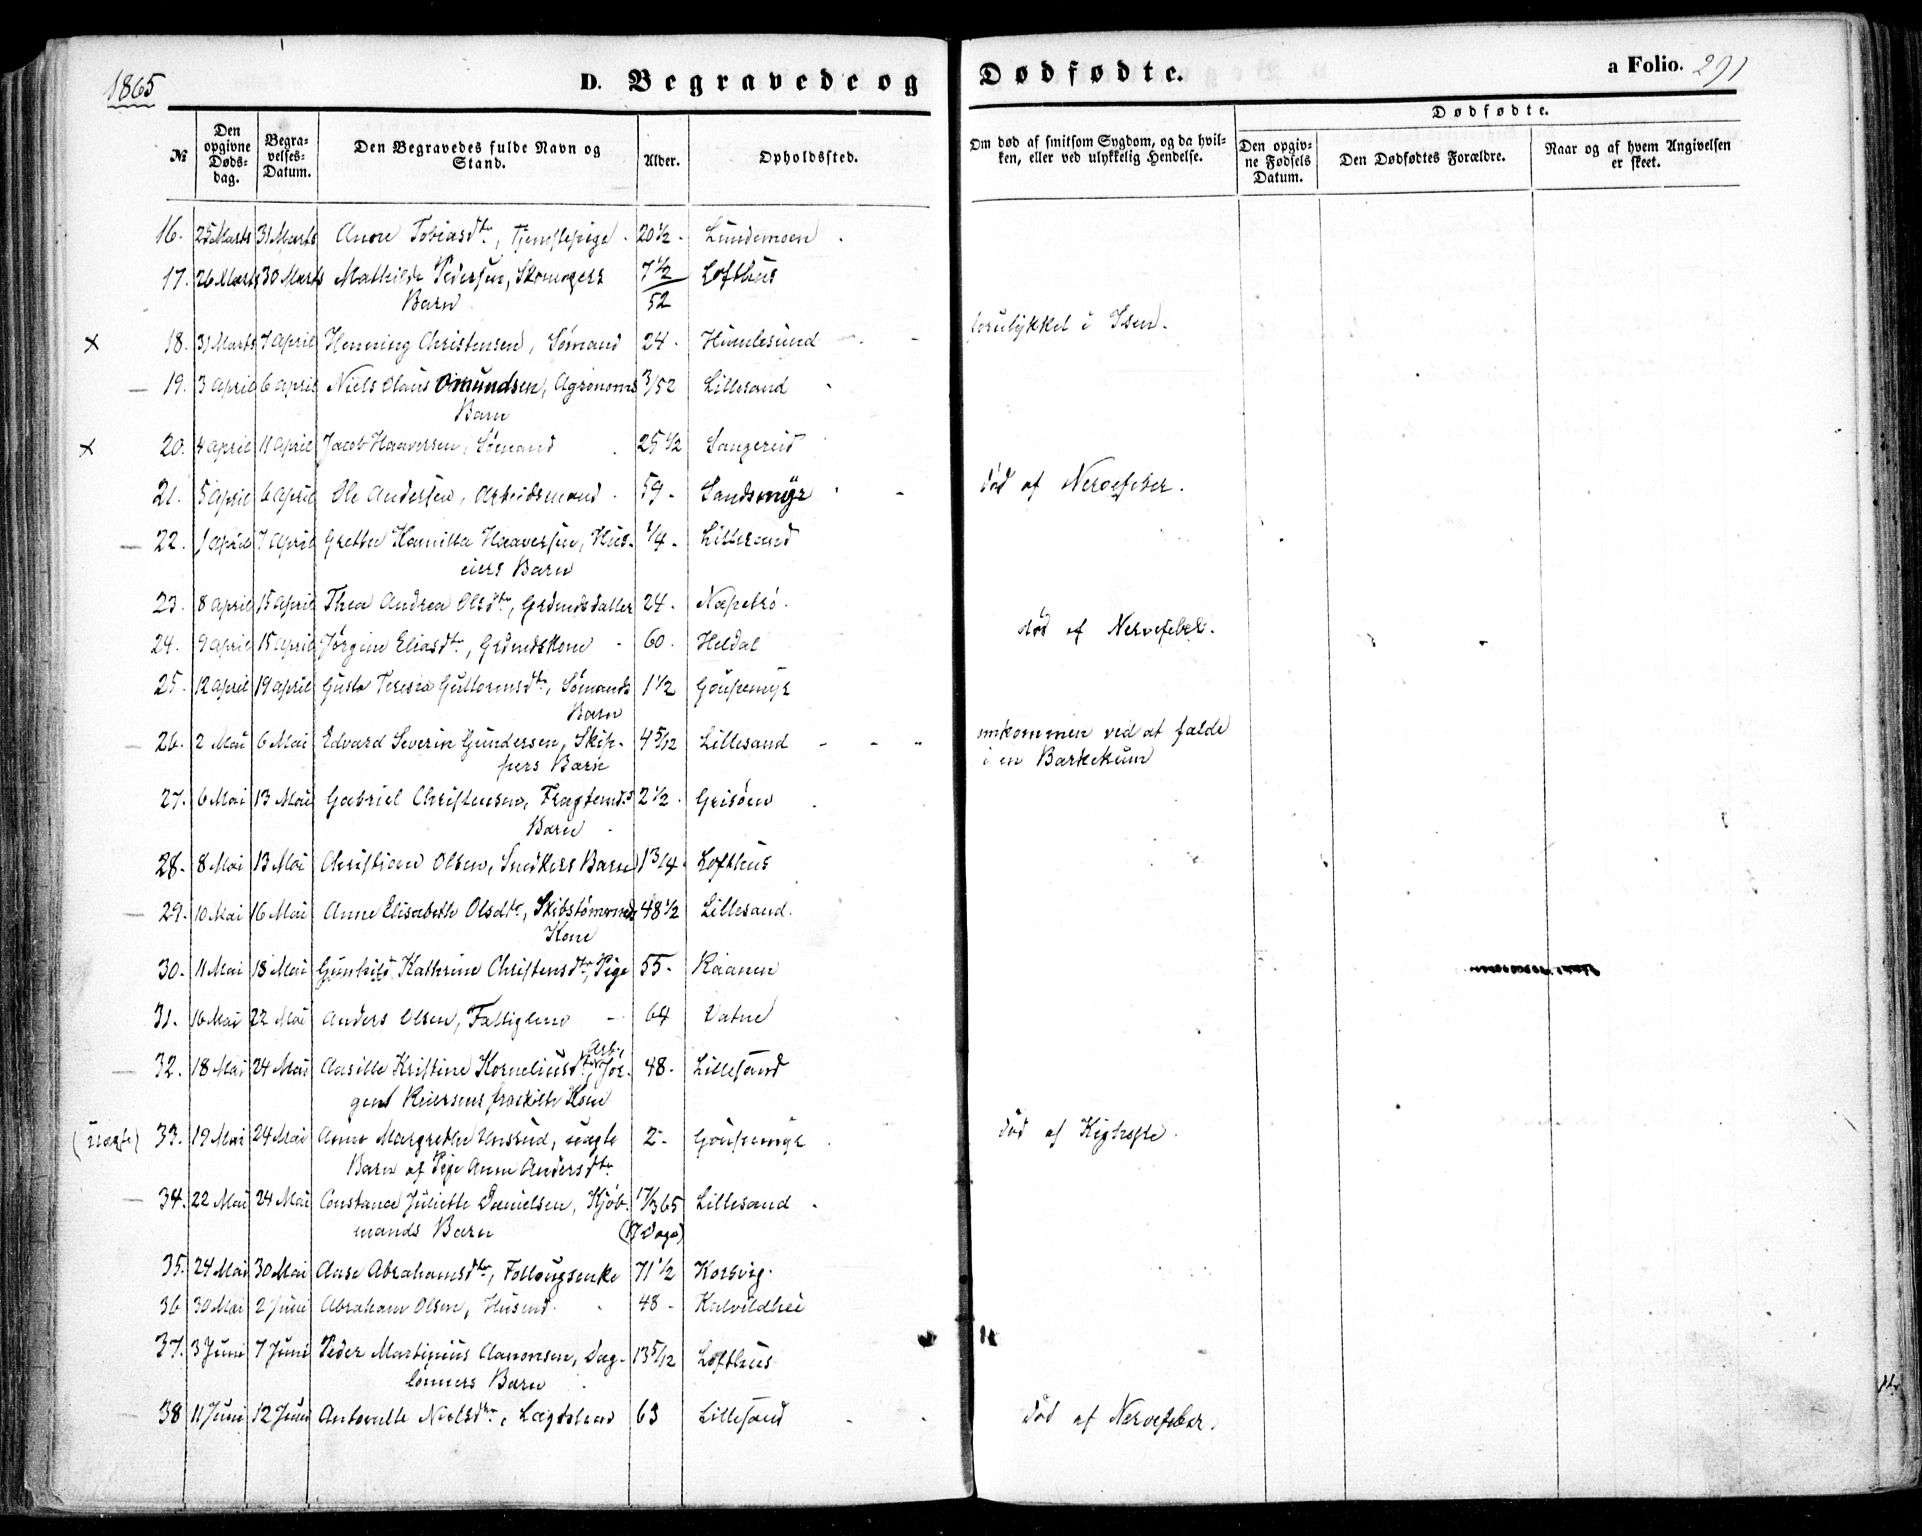 1865
D. Begravede og Dødfødte.
a Folio. 291
№
Den opgivne Døds-dag.
Begra-velses-Datum.
Den Begravedes fulde Navn og Stand.
Alder.
Opholdssted.
Om død af smitsom Sygdom, og da hvil-ken, eller ved ulykkelig Hendelse.
Dødfødte.
Den opgiv-ne Fødsels Datum.
Den Dødfødtes Forældre.
Naar og af hvem Angivelsen er skeet.
16. 25 Marts 31 Marts Anne Tobiasdtr, Tjenstepige 20 1/2 Lundemoen
17. 26 Marts 30 Marts Mathilde Pedersen, Skomagers 7 1/2 Lofthus
Barn 52
x 18. 31 Marts 7 April Henning Christensen, Sømand 24 Humlesund forulykket i Isen.
19. 3 April 6 April Niels Olaus Omundsen, Agronoms 3/52 Lillesand
Barn
x 20. 4 April 11 April Jacob Haaversen, Sømand 25 1/2 Sangereid
21. 5 April 6 April Ole Andersen, Arbeidsmand 59 Sandsmyr død af Nervefeber.
22. 1 April 7 April Grethe Kamilla Haaversen, Hus- 1/4 Lillesand
eiers Barn
23. 8 April 15 April Thea Andrea Olsdtr, Grdmdsdatter 24 Næpetrø
24. 9 April 15 April Jørgine Eliasdtr, Grdmdskone 60 Heldal død af Nervefeber.
25. 12 April 19 April Gusta Teresia Guttormsdtr, Sømands 1 1/2 Goupemyr
Barn
26. 2 Mai 6 Mai Edvard Severin Gundersen, Skip- 4 5/12 Lillesand omkommen ved at falde
pers Barn i en Barkekum
27. 6 Mai 13 Mai Gabriel Christensen, Fragtemds 2 1/2 Grisøen
Barn
28. 8 Mai 13 Mai Christian Olsen, Snedkers Barn 1 3/4 Lofthus
29. 10 Mai 16 Mai Anne Elisabeth Olsdtr, Skibstømmermds 48 1/2 Lillesand.
Kone
30. 11 Mai 18 Mai Gunhild Kathrine Christensdtr, Pige 55 Raanen
31. 16 Mai 22 Mai Anders Olsen, Fattiglem 64 Vatne
32. 18 Mai 24 Mai Aasille Kristine Korneliusdtr, Arb. Jør- 48 Lillesand
gen Reiersens fraskilte Kone
(uægte) 33. 19 Mai 24 Mai Anne Margrethe uægte 2 Goupemyr død af Kighoste.
Barn af Pige Anne Andersdtr
34. 22 Mai 24 Mai Constance Juliette Danielsen, Kjøb- 17/365 Lillesand
mands Barn (17 Dage)
35. 24 Mai 30 Mai Aase Abrahamsdtr, Follougsenke 71 1/2 Korsvig
36 30 Mai 2 Juni Abraham Olsen, Husmd. 48 Kalvildhei
37. 3 Juni 7 Juni Peder Martinius Aanonsen, Dag- 13 5/12 Lofthus
lønners Barn
38 11 Juni 12 Juni Antonette Nielsdtr, Lægdslem 63 Lillesand død af Nervefeber.